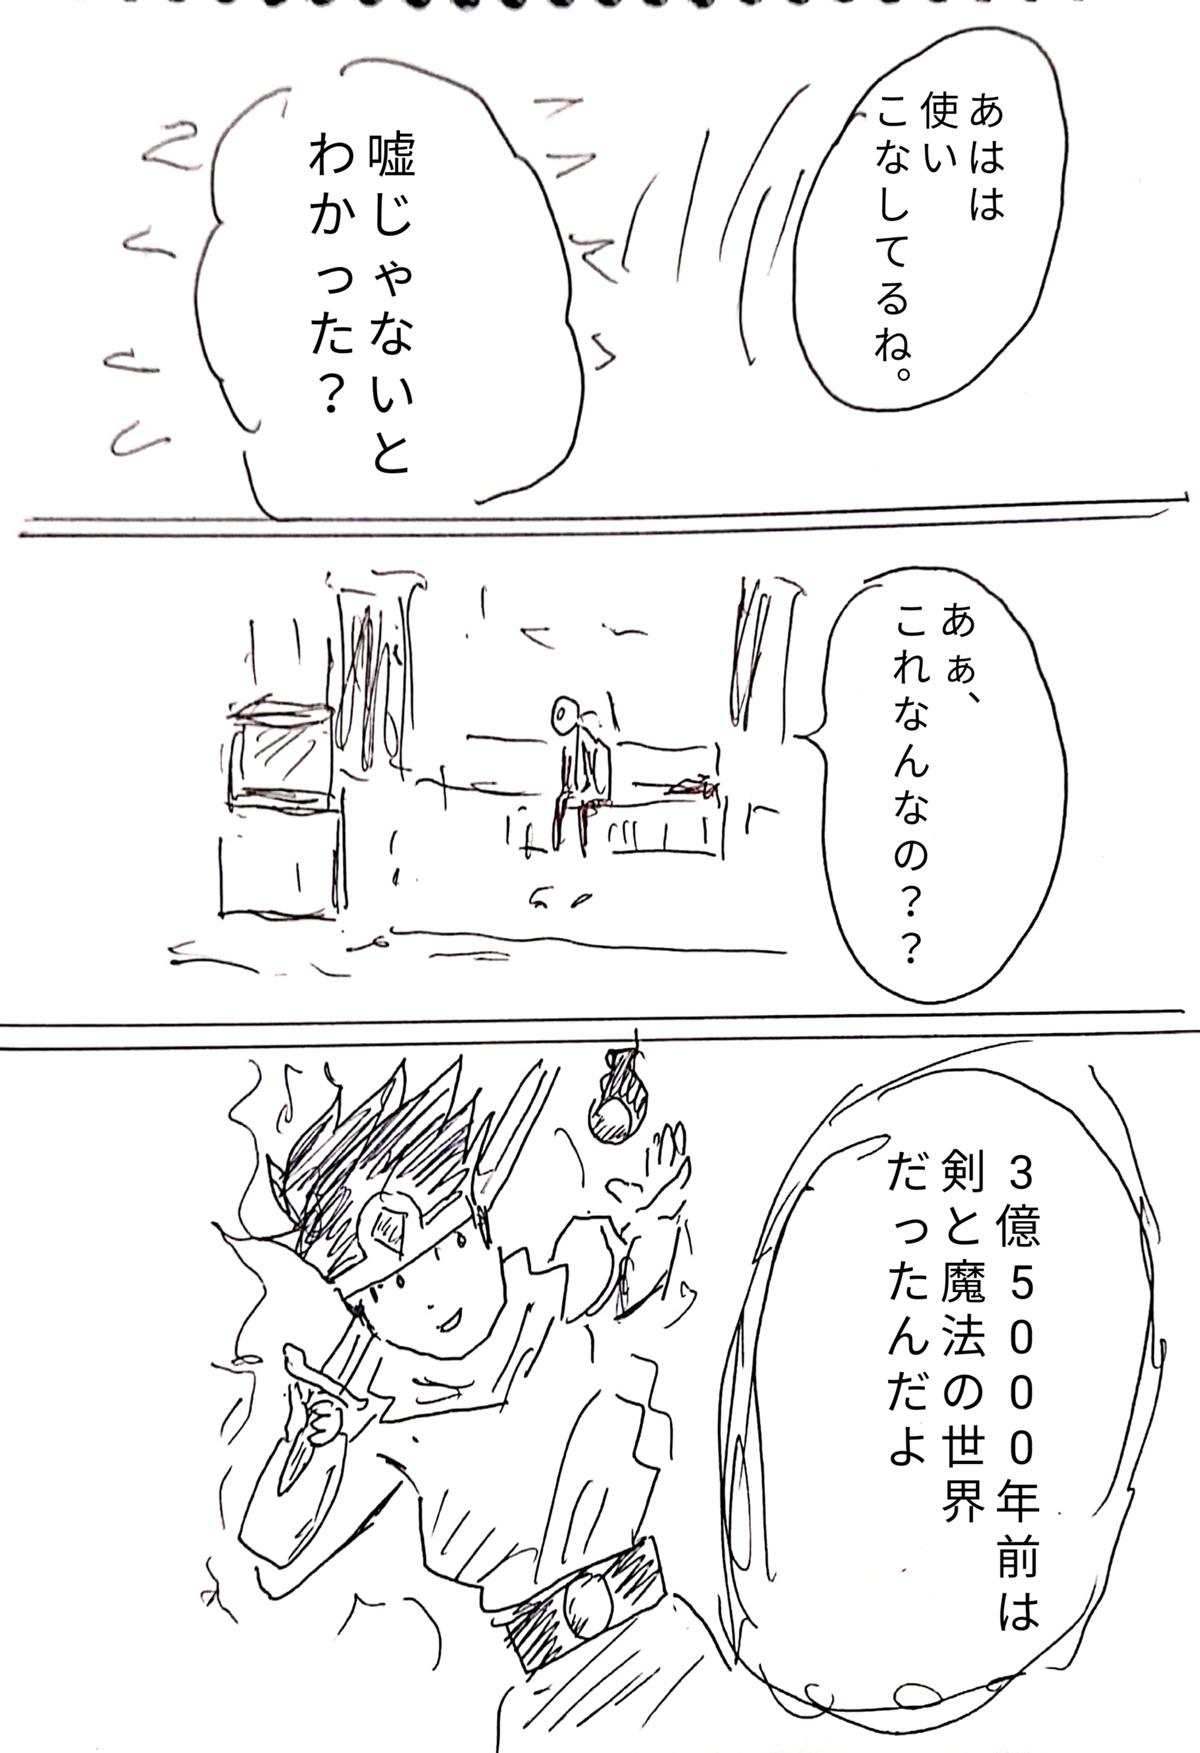 あはは
使い
こなしてるね。
嘘じゃないと
わかった？
あぁ、
これなんなの？？
3億5000年前は
剣と魔法の世界
だったんだよ